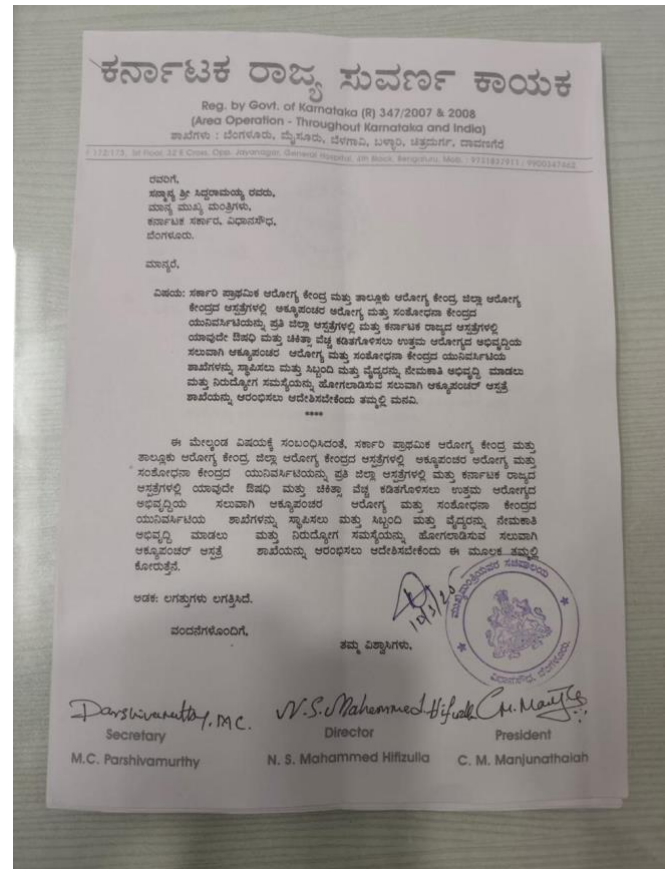 ಕರ್ನಾಟಕ ರಾಜ್ಯ ಸುವರ್ಣ ಕಾಯಕ
Reg. by Govt. of Karnataka (R) 347/2007 & 2008
(Area Operation - Throughout Karnataka and India)
ಶಾಖೆಗಳು : ಬೆಂಗಳೂರು, ಮೈಸೂರು, ಬೆಳಗಾವಿ, ಬಳ್ಳಾರಿ, ಚಿತ್ರದುರ್ಗ, ದಾವಣಗೆರೆ
Ist Floor, 32 E Cross, Opp. Jayanagar, General Hospital, 4th Block, Bengaluru, Mob. :
ರವರಿಗೆ,
ಸನ್ಮಾನ್ಯ ಶ್ರೀ ಸಿದ್ದರಾಮಯ್ಯ ರವರು,
ಮಾನ್ಯ ಮುಖ್ಯ ಮಂತ್ರಿಗಳು,
ಕರ್ನಾಟಕ ಸರ್ಕಾರ, ವಿಧಾನಸೌಧ,
ಬೆಂಗಳೂರು.
ಮಾನ್ಯರೆ,
ವಿಷಯ: ಸರ್ಕಾರಿ ಪ್ರಾಥಮಿಕ ಆರೋಗ್ಯ ಕೇಂದ್ರ ಮತ್ತು ತಾಲ್ಲೂಕು ಆರೋಗ್ಯ ಕೇಂದ್ರ, ಜಿಲ್ಲಾ ಆರೋಗ್ಯ
ಕೇಂದ್ರದ ಆಸ್ಪತ್ರೆಗಳಲ್ಲಿ ಆಕ್ಯೂಪಂಚರ ಆರೋಗ್ಯ ಮತ್ತು ಸಂಶೋಧನಾ ಕೇಂದ್ರದ
ಯುನಿವರ್ಸಿಟಿಯನ್ನು ಪ್ರತಿ ಜಿಲ್ಲಾ ಆಸ್ಪತ್ರೆಗಳಲ್ಲಿ ಮತ್ತು ಕರ್ನಾಟಕ ರಾಜ್ಯದ ಆಸ್ಪತ್ರೆಗಳಲ್ಲಿ
ಯಾವುದೇ ಔಷಧಿ ಮತ್ತು ಚಿಕಿತ್ಸಾ ವೆಚ್ಚ ಕಡಿತಗೊಳಿಸಲು ಉತ್ತಮ ಆರೋಗ್ಯದ ಅಭಿವೃದ್ಧಿಯ
ಸಲುವಾಗಿ ಆಕ್ಯೂಪಂಚರ ಆರೋಗ್ಯ ಮತ್ತು ಸಂಶೋಧನಾ ಕೇಂದ್ರದ ಯುನಿವರ್ಸಿಟಿಯ
ಶಾಖೆಗಳನ್ನು ಸ್ಥಾಪಿಸಲು ಮತ್ತು ಸಿಬ್ಬಂದಿ ಮತ್ತು ವೈದ್ಯರನ್ನು ನೇಮಕಾತಿ ಅಭಿವೃದ್ಧಿ ಮಾಡಲು
ಮತ್ತು ನಿರುದ್ಯೋಗ ಸಮಸ್ಯೆಯನ್ನು ಹೋಗಲಾಡಿಸುವ ಸಲುವಾಗಿ ಆಕ್ಯೂಪಂಚರ್ ಆಸ್ಪತ್ರೆ
ಶಾಖೆಯನ್ನು ಆರಂಭಿಸಲು ಆದೇಶಿಸಬೇಕೆಂದು ತಮ್ಮಲ್ಲಿ ಮನವಿ.
****
ಈ ಮೇಲ್ಕಂಡ ವಿಷಯಕ್ಕೆ ಸಂಬಂಧಿಸಿದಂತೆ, ಸರ್ಕಾರಿ ಪ್ರಾಥಮಿಕ ಆರೋಗ್ಯ ಕೇಂದ್ರ ಮತ್ತು
ತಾಲ್ಲೂಕು ಆರೋಗ್ಯ ಕೇಂದ್ರ, ಜಿಲ್ಲಾ ಆರೋಗ್ಯ ಕೇಂದ್ರದ ಆಸ್ಪತ್ರೆಗಳಲ್ಲಿ ಆಕ್ಯೂಪಂಚರ ಆರೋಗ್ಯ ಮತ್ತು
ಸಂಶೋಧನಾ ಕೇಂದ್ರದ ಯುನಿವರ್ಸಿಟಿಯನ್ನು ಪ್ರತಿ ಜಿಲ್ಲಾ ಆಸ್ಪತ್ರೆಗಳಲ್ಲಿ ಮತ್ತು ಕರ್ನಾಟಕ ರಾಜ್ಯದ
ಆಸ್ಪತ್ರೆಗಳಲ್ಲಿ ಯಾವುದೇ ಔಷಧಿ ಮತ್ತು ಚಿಕಿತ್ಸಾ ವೆಚ್ಚ ಕಡಿತಗೊಳಿಸಲು ಉತ್ತಮ ಆರೋಗ್ಯದ
ಅಭಿವೃದ್ಧಿಯ ಸಲುವಾಗಿ ಆಕ್ಯೂಪಂಚರ ಆರೋಗ್ಯ ಮತ್ತು ಸಂಶೋಧನಾ ಕೇಂದ್ರದ
ಯುನಿವರ್ಸಿಟಿಯ ಶಾಖೆಗಳನ್ನು ಸ್ಥಾಪಿಸಲು ಮತ್ತು ಸಿಬ್ಬಂದಿ ಮತ್ತು ವೈದ್ಯರನ್ನು ನೇಮಕಾತಿ
ಅಭಿವೃದ್ಧಿ ಮಾಡಲು ಮತ್ತು ನಿರುದ್ಯೋಗ ಸಮಸ್ಯೆಯನ್ನು ಹೋಗಲಾಡಿಸುವ ಸಲುವಾಗಿ
ಆಕ್ಯೂಪಂಚರ್ ಆಸ್ಪತ್ರೆ ಶಾಖೆಯನ್ನು ಆರಂಭಿಸಲು ಆದೇಶಿಸಬೇಕೆಂದು ಈ ಮೂಲಕ ತಮ್ಮಲ್ಲಿ
ಕೋರುತ್ತೆನೆ.
ಅಡಕ: ಲಗತ್ತುಗಳು ಲಗತ್ತಿಸಿದೆ.
ವಂದನೆಗಳೊಂದಿಗೆ,
ತಮ್ಮ ವಿಶ್ವಾಸಿಗಳು,
ಮುಖ್ಯಮಂತ್ರಿಯವರ ಸಚಿವಾಲಯ
ವಿಧಾನಸೌಧ, ಬೆಂಗಳೂರು.
Parshivamurthy. M.C. N.S. Mahemmed Hifzulla C.M. Manju
Secretary Director President
M.C. Parshivamurthy N. S. Mahammed Hifizulla C. M. Manjunathaiah